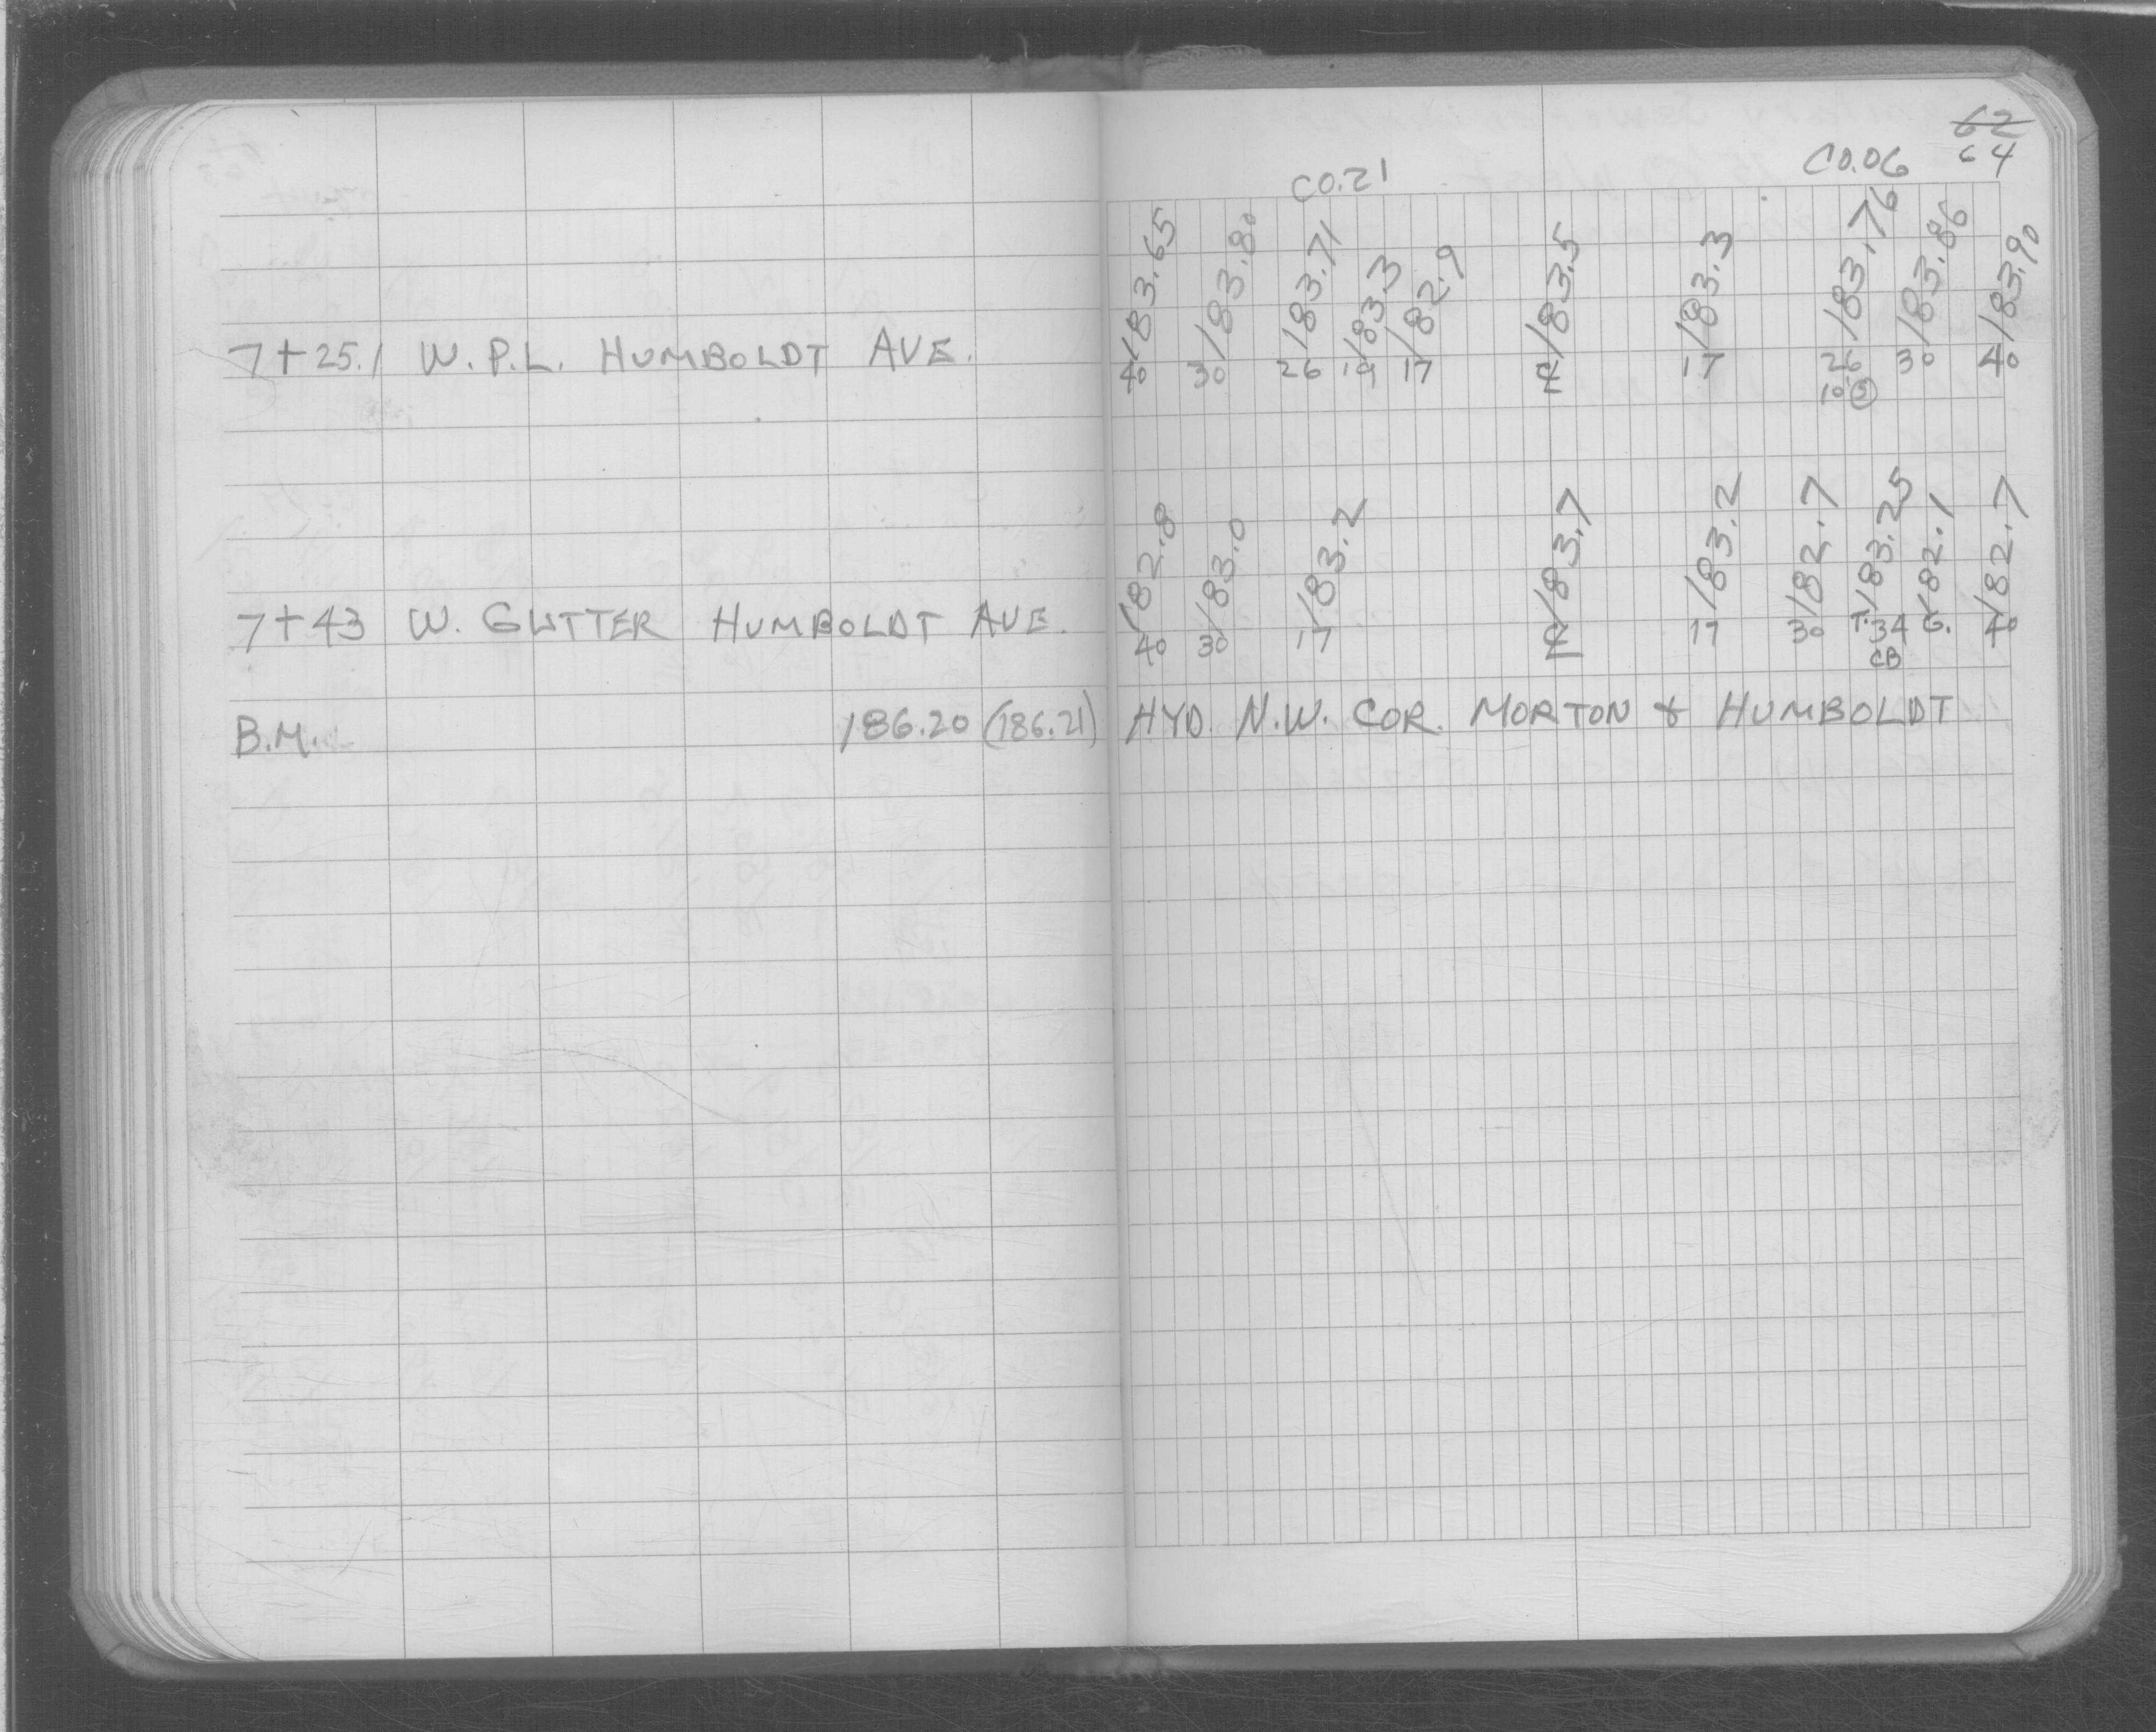 62
64
C0.21 C0.06
183.65 183.80 183.71 183.3 182.9 183.5 183.3 183.76 183.86 183.90
7+25.1 W. P.L. HUMBOLDT AVE. 40 30 26 19 17 ℄ 17 26 30 40
10 5
182.8 183.0 183.2 183.7 183.2 182.7 183.25 182.1 182.7
7+43 W. GUTTER HUMBOLDT AVE. 40 30 17 ℄ 17 30 T. 34 G. 40
CB
B.M. 186.20 (186.21) HYD. N.W. COR. MORTON & HUMBOLDT